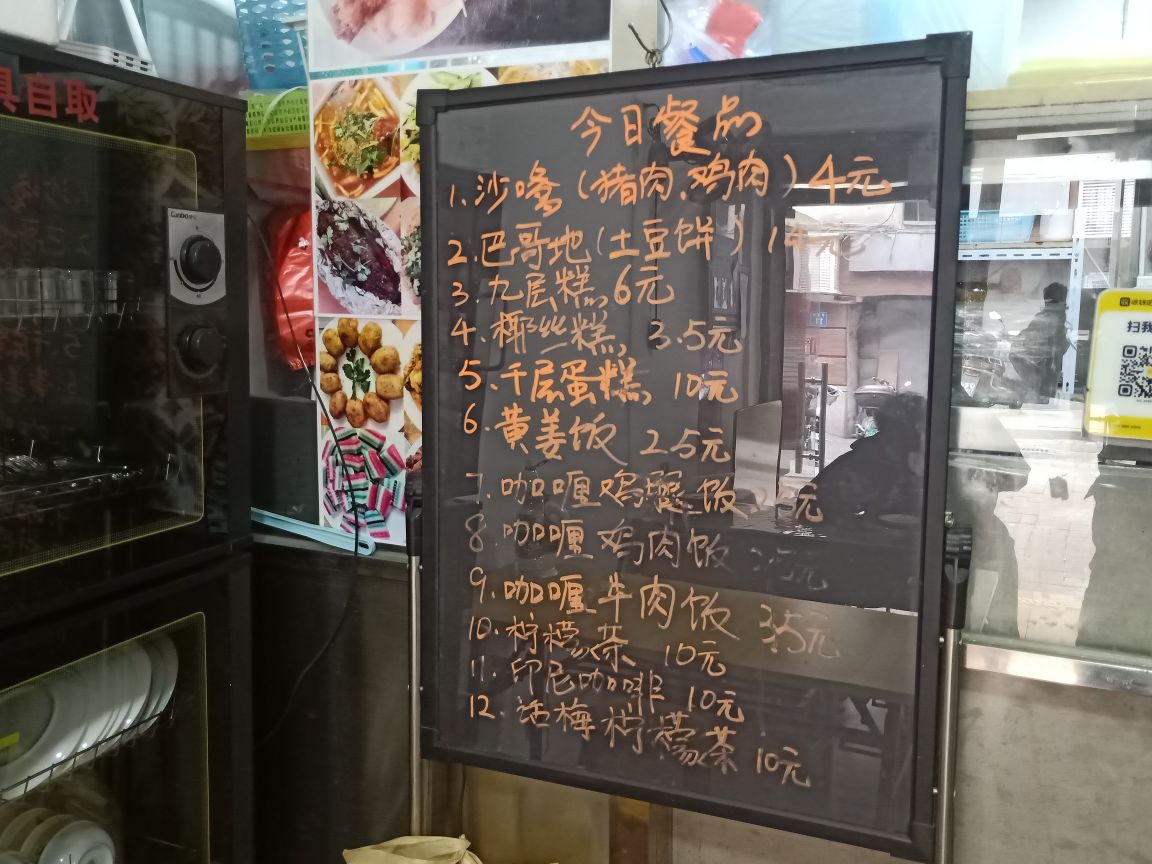 具自取
Canbo
今日餐品
1.沙嗲(猪肉、鸡肉)4元
2.巴哥地(土豆饼)
3.九层糕,6元
4.椰丝糕,3.5元
5.千层蛋糕,10元
6.黄姜饭 25元
7.咖喱鸡腿饭
8.咖喱鸡肉饭
9.咖喱牛肉饭 35元
10.柠檬茶 10元
11.印尼咖啡 10元
12.话梅柠檬茶 10元
扫我